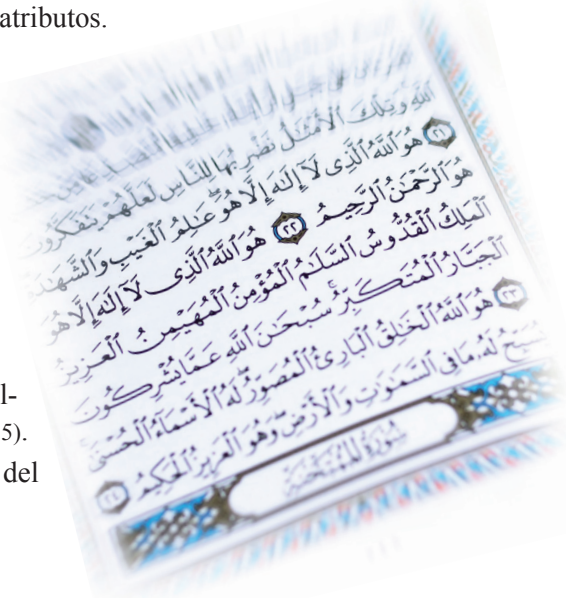 atributos.
ٱللَّهِ وَتِلْكَ ٱلْأَمْثَٰلُ نَضْرِبُهَا لِلنَّاسِ لَعَلَّهُمْ يَتَفَكَّرُونَ
٢١ هُوَ ٱللَّهُ ٱلَّذِى لَآ إِلَٰهَ إِلَّا هُوَ عَٰلِمُ ٱلْغَيْبِ وَٱلشَّهَٰدَةِ
هُوَ ٱلرَّحْمَٰنُ ٱلرَّحِيمُ ٢٢ هُوَ ٱللَّهُ ٱلَّذِى لَآ إِلَٰهَ إِلَّا هُوَ
ٱلْمَلِكُ ٱلْقُدُّوسُ ٱلسَّلَٰمُ ٱلْمُؤْمِنُ ٱلْمُهَيْمِنُ ٱلْعَزِيزُ
ٱلْجَبَّارُ ٱلْمُتَكَبِّرُ سُبْحَٰنَ ٱللَّهِ عَمَّا يُشْرِكُونَ
٢٣ هُوَ ٱللَّهُ ٱلْخَٰلِقُ ٱلْبَارِئُ ٱلْمُصَوِّرُ لَهُ ٱلْأَسْمَآءُ ٱلْحُسْنَىٰ
يُسَبِّحُ لَهُۥ مَا فِى ٱلسَّمَٰوَٰتِ وَٱلْأَرْضِ وَهُوَ ٱلْعَزِيزُ ٱلْحَكِيمُ ٢٤
سُورَةُ ٱلْمُمْتَحَنَةِ
l-
5).
del